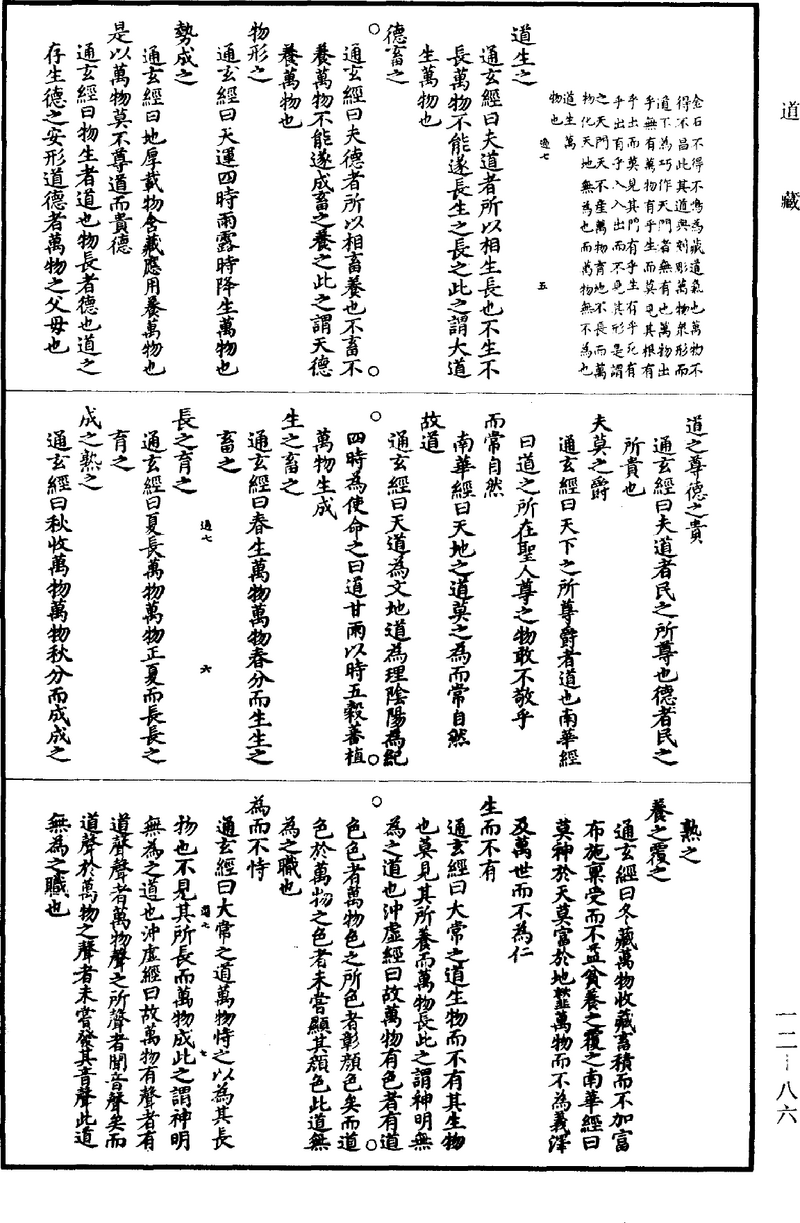 道藏
金石不得不鳴為藏道氣也萬物不
得不昌此其道與刻彫萬物衆形而
道不為巧作天門者無有也萬物出
乎無有萬物有乎生而莫見其根有
乎出而莫見其門有乎生有乎死有
乎出有乎入入出而不見其形是謂
之天門天不産萬物育地不長而萬
物化天地無為也而萬物無不為也
道生萬
物也
通七 五
道生之
通玄經曰夫道者所以相生長也不生不
長萬物不能遂長生之長之此之謂大道
生萬物也
德畜之
通玄經曰夫德者所以相畜養也不畜不
養萬物不能遂成畜之養之此之謂天德
養萬物也
物形之
通玄經曰天運四時雨露時降生萬物也
勢成之
通玄經曰地厚載物含藏應用養萬物也
是以萬物莫不尊道而貴德
通玄經曰物生者道也物長者德也道之
存生德之安形道德者萬物之父母也
道之尊德之貴
通玄經曰夫道者民之所尊也德者民之
所貴也
夫莫之爵
通玄經曰天下之所尊爵者道也南華經
曰道之所在聖人尊之物敢不敬乎
而常自然
南華經曰天地之道莫之為而常自然
故道
通玄經曰天道為文地道為理陰陽為紀
四時為使命之曰道甘雨以時五穀蕃植
萬物生成
生之畜之
通玄經曰春生萬物萬物春分而生生之
畜之
長之育之
通七 六
通玄經曰夏長萬物萬物正夏而長長之
育之
成之熟之
通玄經曰秋收萬物萬物秋分而成成之
熟之
養之覆之
通玄經曰冬藏萬物收藏畜積而不加富
布施稟受而不益貧養之覆之南華經曰
莫神於天莫富於地䪠萬物而不為義澤
及萬世而不為仁
生而不有
通玄經曰大常之道生物而不有其生物
也莫見其所養而萬物長此之謂神明無
為之道也沖虛經曰故萬物有色者有道
色色者萬物色之所色者彰顏色矣而道
色於萬物之色者未嘗顯其顏色此道無
為之職也
為而不恃
通玄經曰大常之道萬物恃之以為其長
通七 七
物也不見其所長而萬物成此之謂神明
無為之道也沖虛經曰故萬物有聲者有
道聲聲者萬物聲之所聲者聞音聲矣而
道聲於萬物之聲者未嘗發其音聲此道
無為之職也
一二—八六